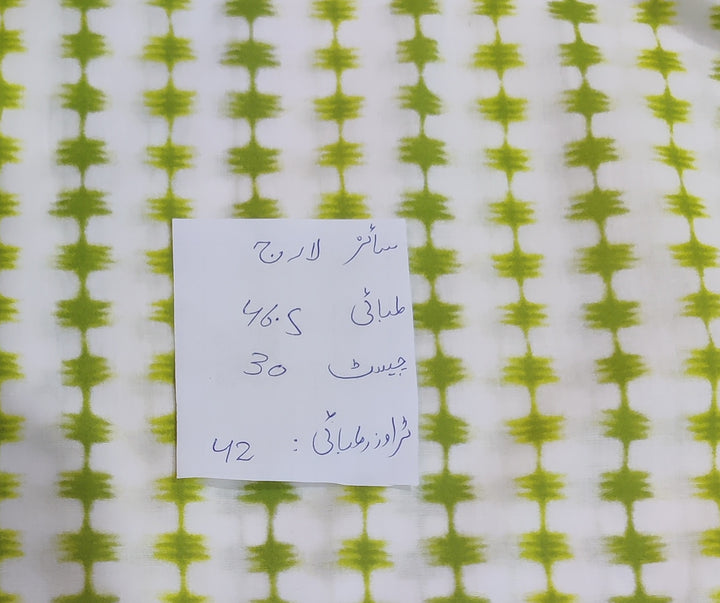 سائز لارج
لمبائی 46.5
چیسٹ 30
ٹراوزر لمبائی : 42